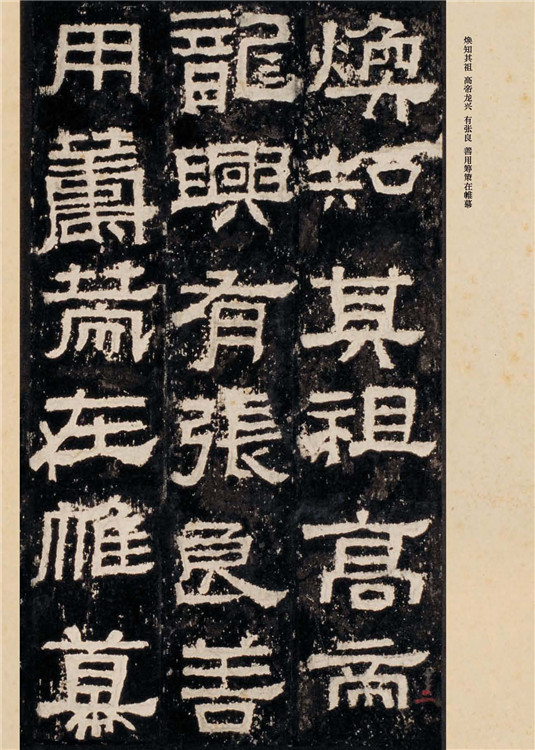 焕知其祖 高帝龙兴 有张良 善用筹策在帷幕
煥知其祖高帝
龍興有張良善
用籌策在帷幕